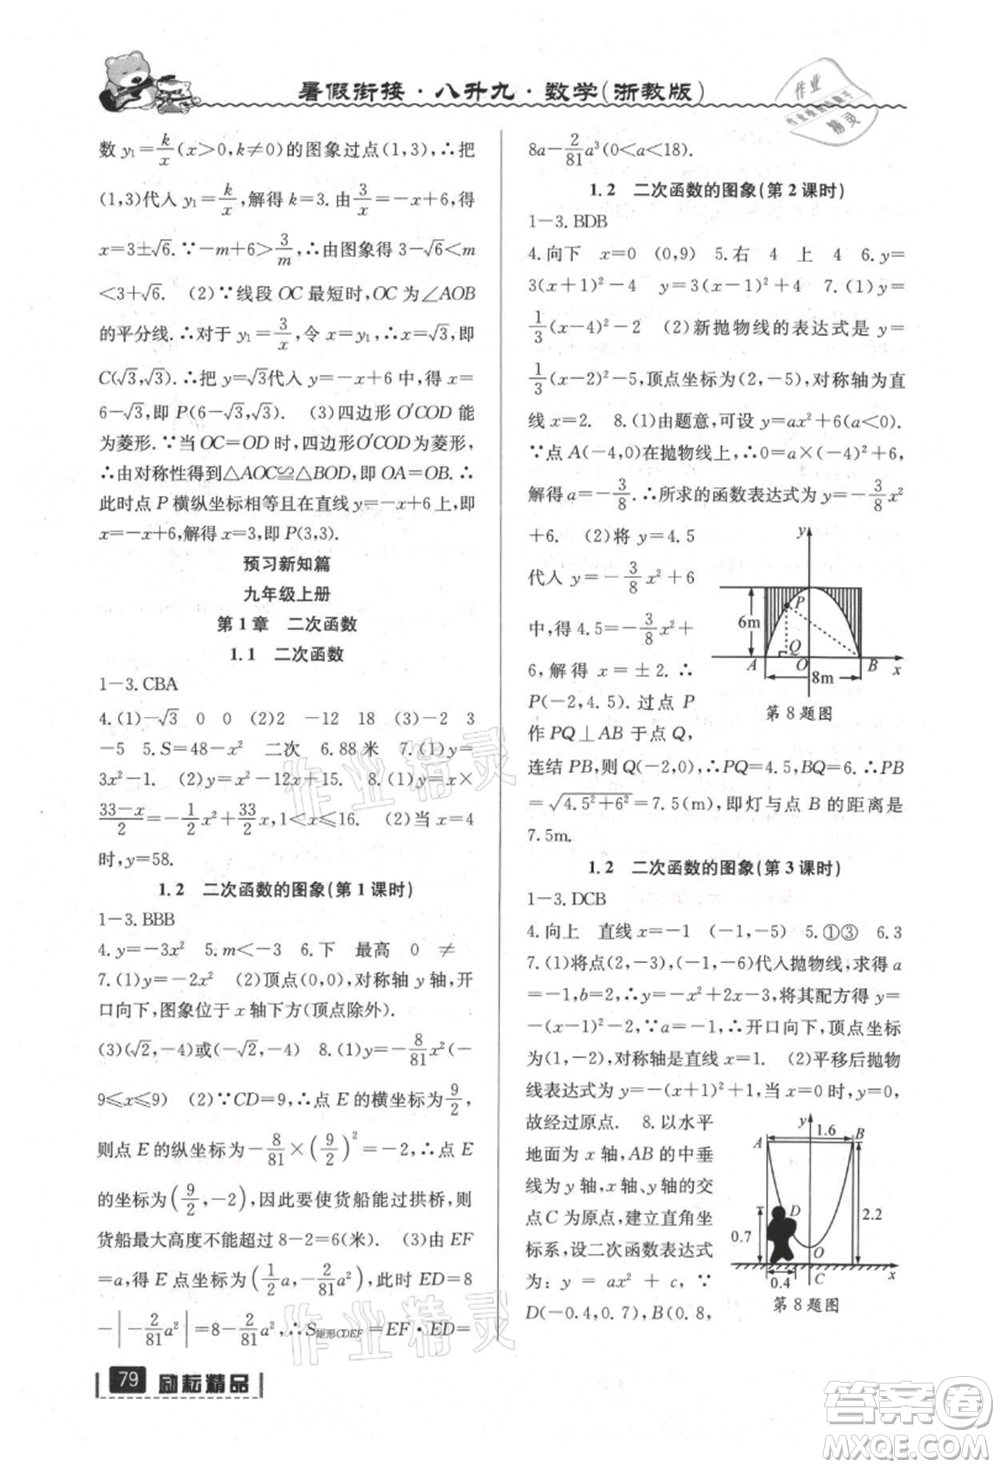 暑假衔接·八升九·数学(浙教版)
作业
精灵
数 y₁=k/x(x>0,k≠0)的图象过点(1,3),∴把
(1,3)代入 y₁=k/x,解得 k=3.∴3/x=-x+6,得
x=3±√6.∵-m+6>3/m,∴由图象得 3-√6<m
<3+√6.  (2)∵线段 OC 最短时,OC 为∠AOB
的平分线.∴对于 y₁=3/x,令 x=√3,得 y=√3,即
C(√3,√3).∴把 y=√3代入 y=-x+6,得 x=
6-√3,即 P(6-√3,√3).  (3)四边形 O′COD 能
为菱形.∵当 OC=OD 时,四边形 O′COD 为菱形,
∴由对称性得到△AOC≌△BOD,即 OA=OB.∴
此时点 P 横纵坐标相等且在直线 y=-x+6,即 x=
-x+6,解得 x=3,即 P(3,3).
预习新知篇
九年级上册
第 1 章  二次函数
1.1  二次函数
1-3.CBA
4.(1)-√3  0  0  (2)2  -12  18  (3)-2  3
-5  5.S=48-x²  二次  6.88 米  7.(1)y=
3x²-1.  (2)y=2x²-12x+15.  8.(1)y=x×
(33-x)/2=-1/2x²+33/2x,1≤x≤16.  (2)当 x=4
时,y=58.
1.2  二次函数的图象(第 1 课时)
1-3.BBB
4.y=-3x²  5.m<-3  6.下  最高  0  ≠
7.(1)y=-2x²  (2)顶点(0,0),对称轴 y 轴,开
口向下,图象位于 x 轴下方(顶点除外).
(3)(√2,-4)或(-√2,-4)  8.(1)y=-8/81x²(-
9≤x≤9)  (2)∵CD=9,∴点 E 的横坐标为9/2,
则点 E 的纵坐标为-8/81×(9/2)²=-2,∴点 E
的坐标为(9/2,-2),因此要使货船能过拱桥,则
货船最大高度不能超过 8-2=6(米).  (3)由 EF
=a,得 E(1/2a,-2/81a²),此时 ED=8
-|-2/81a²|=8-2/81a²,∴S矩形CDEF=EF·ED=
79
励耘精品
8a-2/81a³(0<a<18).
1.2  二次函数的图象(第 2 课时)
1-3.BDB
4.向下  x=0  (0,9)  5.右  4  上  4  6.y=
3(x+1)²-4  y=3(x-1)²-4  7.(1)y=
1/3(x-4)²-2  (2)新抛物线的表达式是 y=
1/3(x-2)²-5,顶点坐标为(2,-5),对称轴为直
线 x=2.  8.(1)由题意,可设 y=ax²+6(a<0).
∵点 A(-4,0)在抛物线上,∴0=a×(-4)²+6,
解得 a=-3/8.∴所求的函数表达式为 y=-3/8x²
+6.  (2)将 y=4.5
代入 y=-3/8x²+6
中,得 4.5=-3/8x²+
6,解得 x=±2.∴
P(-2,4.5).过点 P
作 PQ⊥AB 于点 Q,
y
P
6m
Q
A
O
B
x
8m
第 8 题图
连结 PB,则 Q(-2,0).∴PQ=4.5,BQ=6.∴PB
=√(4.5²+6²)=7.5(m),即灯与点 B 的距离是
7.5m.
1.2  二次函数的图象(第 3 课时)
1-3.DCB
4.向上  直线 x=-1  (-1,-5)  5.①③  6.3
7.(1)将点(1,-2),(-1,-6)代入抛物线,求得 a
=-1,b=2,∴y=-x²+2x-3,将其配方得 y=
-(x-1)²-2,∵a=-1,∴开口向下,顶点坐标
为(1,-2),对称轴是直线 x=1.  (2)平移后抛物
线表达式为 y=-x²+2x=-(x-1)²+1,
故经过原点.  8.以水平
地面为 x 轴,AB 的中垂
线为 y 轴,x 轴、y 轴的交
点 C 为原点,建立直角坐
标系,设二次函数表达式
为:y=ax²+c,∵
D(-0.4,0.7),B(0.8,
y
1.6
A
B
D
0.7
2.2
O
C
x
0.4
第 8 题图
作业精灵
作业精灵
答案圈
MXQE.COM